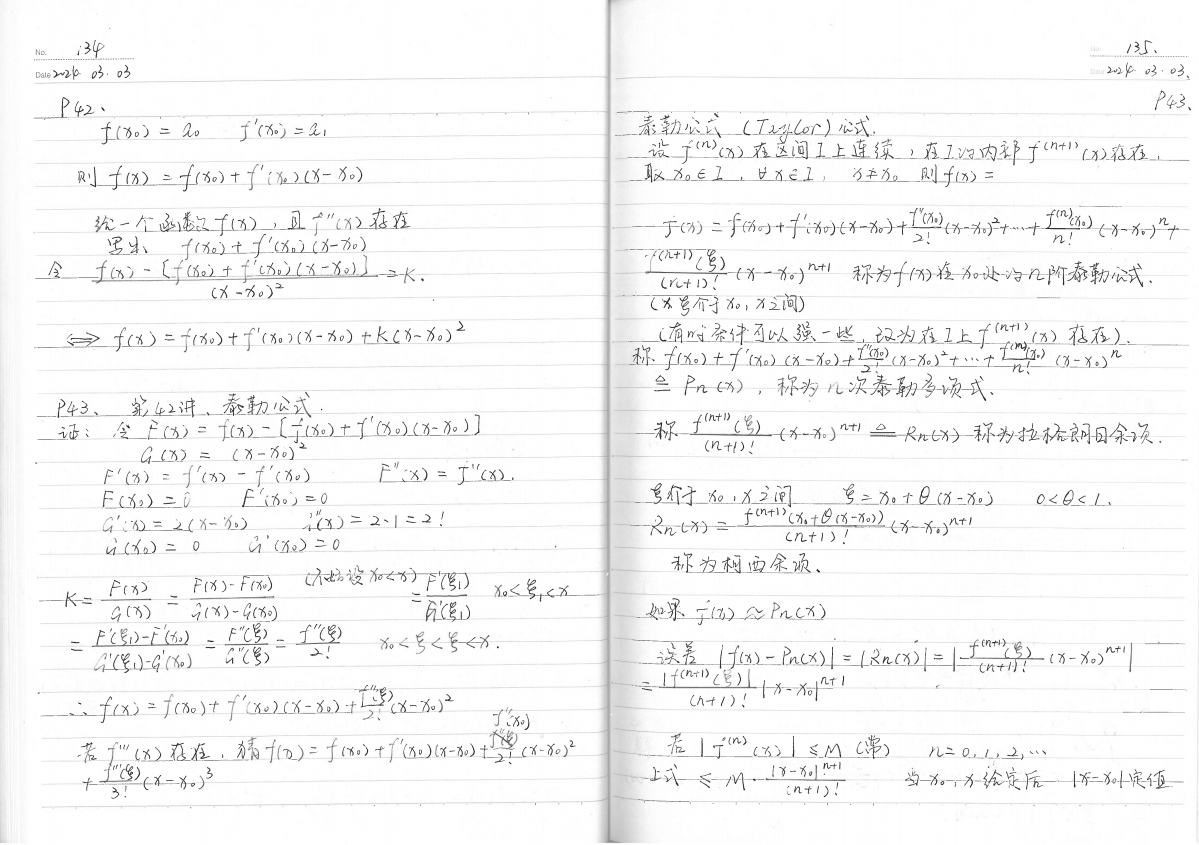 No. 134
Date 2024 03.03
P42、
f(x₀) = a₀ f'(x₀) = a₁
则 f(x) = f(x₀) + f'(x₀)(x-x₀)
给一个函数 f(x), 且 f''(x) 存在
写出 f(x₀) + f'(x₀)(x-x₀)
令 \frac{f(x) - [f(x₀) + f'(x₀)(x-x₀)]}{(x-x₀)²} = K.
⟺ f(x) = f(x₀) + f'(x₀)(x-x₀) + K(x-x₀)²
P43、 第42讲、泰勒公式.
证: 令 F(x) = f(x) - [f(x₀) + f'(x₀)(x-x₀)]
G(x) = (x-x₀)²
F'(x) = f'(x) - f'(x₀) F''(x) = f''(x).
F(x₀) = 0 F'(x₀) = 0
G'(x) = 2(x-x₀) G''(x) = 2·1 = 2!
G(x₀) = 0 G'(x₀) = 0
K = \frac{F(x)}{G(x)} = \frac{F(x)-F(x₀)}{G(x)-G(x₀)} (不妨设 x₀<x) = \frac{F'(ξ₁)}{G'(ξ₁)} x₀<ξ₁<x
= \frac{F'(ξ₁)-F'(x₀)}{G'(ξ₁)-G'(x₀)} = \frac{F''(ξ)}{G''(ξ)} = \frac{f''(ξ)}{2!} x₀<ξ<ξ<x.
∴ f(x) = f(x₀) + f'(x₀)(x-x₀) + \frac{f''(ξ)}{2!}(x-x₀)²
若 f'''(x) 存在, 猜 f(x) = f(x₀) + f'(x₀)(x-x₀) + \frac{f''(x₀)}{2!}(x-x₀)²
+ \frac{f'''(ξ)}{3!}(x-x₀)³
No. 135.
Date 2024 03.03.
P43、
泰勒公式 (Taylor) 公式.
设 f⁽ⁿ⁾(x) 在区间 I 上连续, 在 I 的内部 f⁽ⁿ⁺¹⁾(x) 存在.
取 x₀∈I, ∀x∈I, x≠x₀ 则 f(x) =
f(x) = f(x₀) + f'(x₀)(x-x₀) + \frac{f''(x₀)}{2!}(x-x₀)² + ⋯ + \frac{f⁽ⁿ⁾(x₀)}{n!}(x-x₀)ⁿ +
\frac{f⁽ⁿ⁺¹⁾(ξ)}{(n+1)!}(x-x₀)ⁿ⁺¹ 称为 f(x) 在 x₀ 处的 n 阶泰勒公式.
(x ξ介于 x₀, x 之间)
(有时条件可以强一些, 改为在 I 上 f⁽ⁿ⁺¹⁾(x) 存在).
称 f(x₀) + f'(x₀)(x-x₀) + \frac{f''(x₀)}{2!}(x-x₀)² + ⋯ + \frac{f⁽ⁿ⁾(x₀)}{n!}(x-x₀)ⁿ
≙ Pn(x), 称为 n 次泰勒多项式.
称 \frac{f⁽ⁿ⁺¹⁾(ξ)}{(n+1)!}(x-x₀)ⁿ⁺¹ ≙ Rn(x) 称为拉格朗日余项.
ξ介于 x₀, x 之间 ξ = x₀ + θ(x-x₀) 0<θ<1.
Rn(x) = \frac{f⁽ⁿ⁺¹⁾(x₀+θ(x-x₀))}{(n+1)!}(x-x₀)ⁿ⁺¹
称为柯西余项.
如果 f(x) ≈ Pn(x)
误差 |f(x) - Pn(x)| = |Rn(x)| = |\frac{f⁽ⁿ⁺¹⁾(ξ)}{(n+1)!}(x-x₀)ⁿ⁺¹|
= \frac{|f⁽ⁿ⁺¹⁾(ξ)|}{(n+1)!}|x-x₀|ⁿ⁺¹
若 |f⁽ⁿ⁾(x)| ≤ M (常) n = 0, 1, 2, ⋯
上式 ≤ M · \frac{|x-x₀|ⁿ⁺¹}{(n+1)!} 当 x₀, x 给定后 |x-x₀| 定值